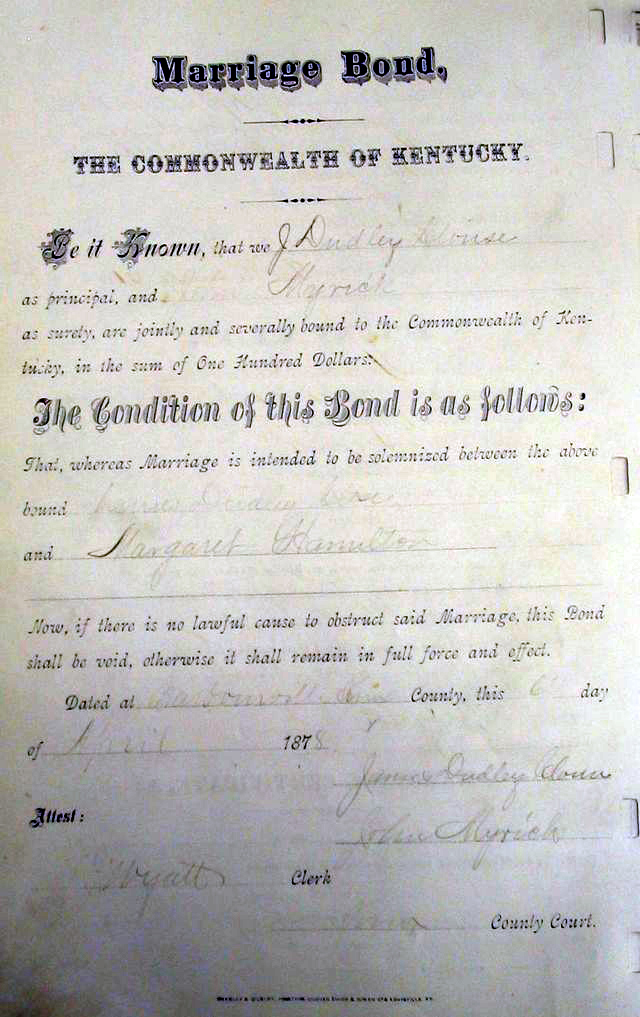 Marriage Bond,
THE COMMONWEALTH OF KENTUCKY.
Be it Known, that we J Dudley Clouse
as principal, and John Myrick
as surety, are jointly and severally bound to the Commonwealth of Ken-
tucky, in the sum of One Hundred Dollars:
The Condition of this Bond is as follows:
That, whereas Marriage is intended to be solemnized between the above
bound Dudley
and Margaret Hamilton
Now, if there is no lawful cause to obstruct said Marriage, this Bond
shall be void, otherwise it shall remain in full force and effect.
Dated at County, this 6 day
of April 1878
James Dudley
Attest:
John Myrick
Wyatt Clerk
County Court.